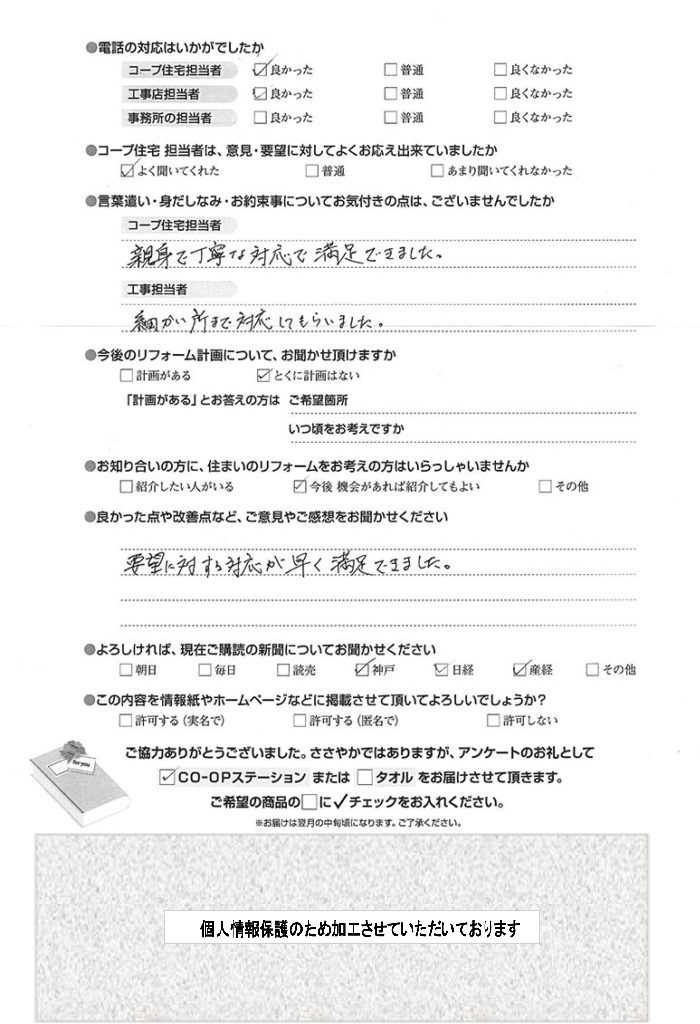 ●電話の対応はいかがでしたか
コープ住宅担当者 ☑良かった □普通 □良くなかった
工事店担当者 ☑良かった □普通 □良くなかった
事務所の担当者 □良かった □普通 □良くなかった
●コープ住宅 担当者は、意見・要望に対してよくお応え出来ていましたか
☑よく聞いてくれた □普通 □あまり聞いてくれなかった
●言葉遣い・身だしなみ・お約束事についてお気付きの点は、ございませんでしたか
コープ住宅担当者
親身で丁寧な対応で満足できました。
工事担当者
細かい所まで対応してもらいました。
●今後のリフォーム計画について、お聞かせ頂けますか
□計画がある ☑とくに計画はない
「計画がある」とお答えの方は ご希望箇所
いつ頃をお考えですか
●お知り合いの方に、住まいのリフォームをお考えの方はいらっしゃいませんか
□紹介したい人がいる ☑今後 機会があれば紹介してもよい □その他
●良かった点や改善点など、ご意見やご感想をお聞かせください
要望に対する対応が早く満足できました。
●よろしければ、現在ご購読の新聞についてお聞かせください
□朝日 □毎日 □読売 ☑神戸 ☑日経 ☑産経 □その他
●この内容を情報紙やホームページなどに掲載させて頂いてよろしいでしょうか？
□許可する（実名で） □許可する（匿名で） □許可しない
for you
ご協力ありがとうございました。ささやかではありますが、アンケートのお礼として
☑CO-OPステーション または □タオル をお届けさせて頂きます。
ご希望の商品の□に✓チェックをお入れください。
※お届けは翌月の中旬頃になります。ご了承ください。
個人情報保護のため加工させていただいております